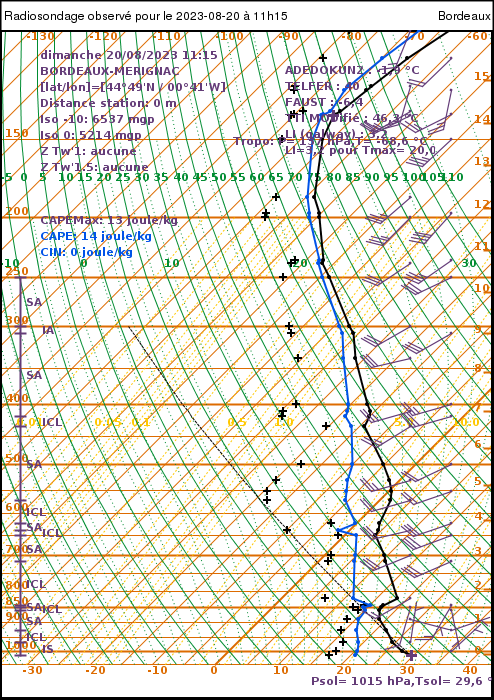 Radiosondage observé pour le 2023-08-20 à 11h15 Bordeaux
-130 -120 -110 -100 -90 -80 -70 -60
dimanche 20/08/2023 11:15
BORDEAUX-MERIGNAC
[lat/lon]=[44°49'N / 00°41'W]
Distance station: 0 m
Iso -10: 6537 mgp
Iso 0: 5214 mgp
Z Tw'1: aucune
Z Tw'1.5: aucune
ELFER : 40
FAUST : -6,4
TII Modifié : 46,3 °C
pour Tmax= 20,0
-5 0 5 10 15 20 25 30 35 40 45 50 55 60 65 70 75 80 85 90 95 100 105 110
CAPEMax: 13 joule/kg
CAPE: 14 joule/kg
CIN: 0 joule/kg
-10 0 10 20 30
150
200
250
300
400
500
600
700
800
850
900
1000
15
14
13
12
11
10
9
8
7
6
5
4
3
2
1
0
SA
IA
SA
ICL
SA
ICL
SA
ICL
SA
ICL
SA
ICL
SA
ICL
IS
0.5 1.0 10.0
-30 -20 -10 0 10 20 30 40
Psol= 1015 hPa,Tsol= 29,6 °